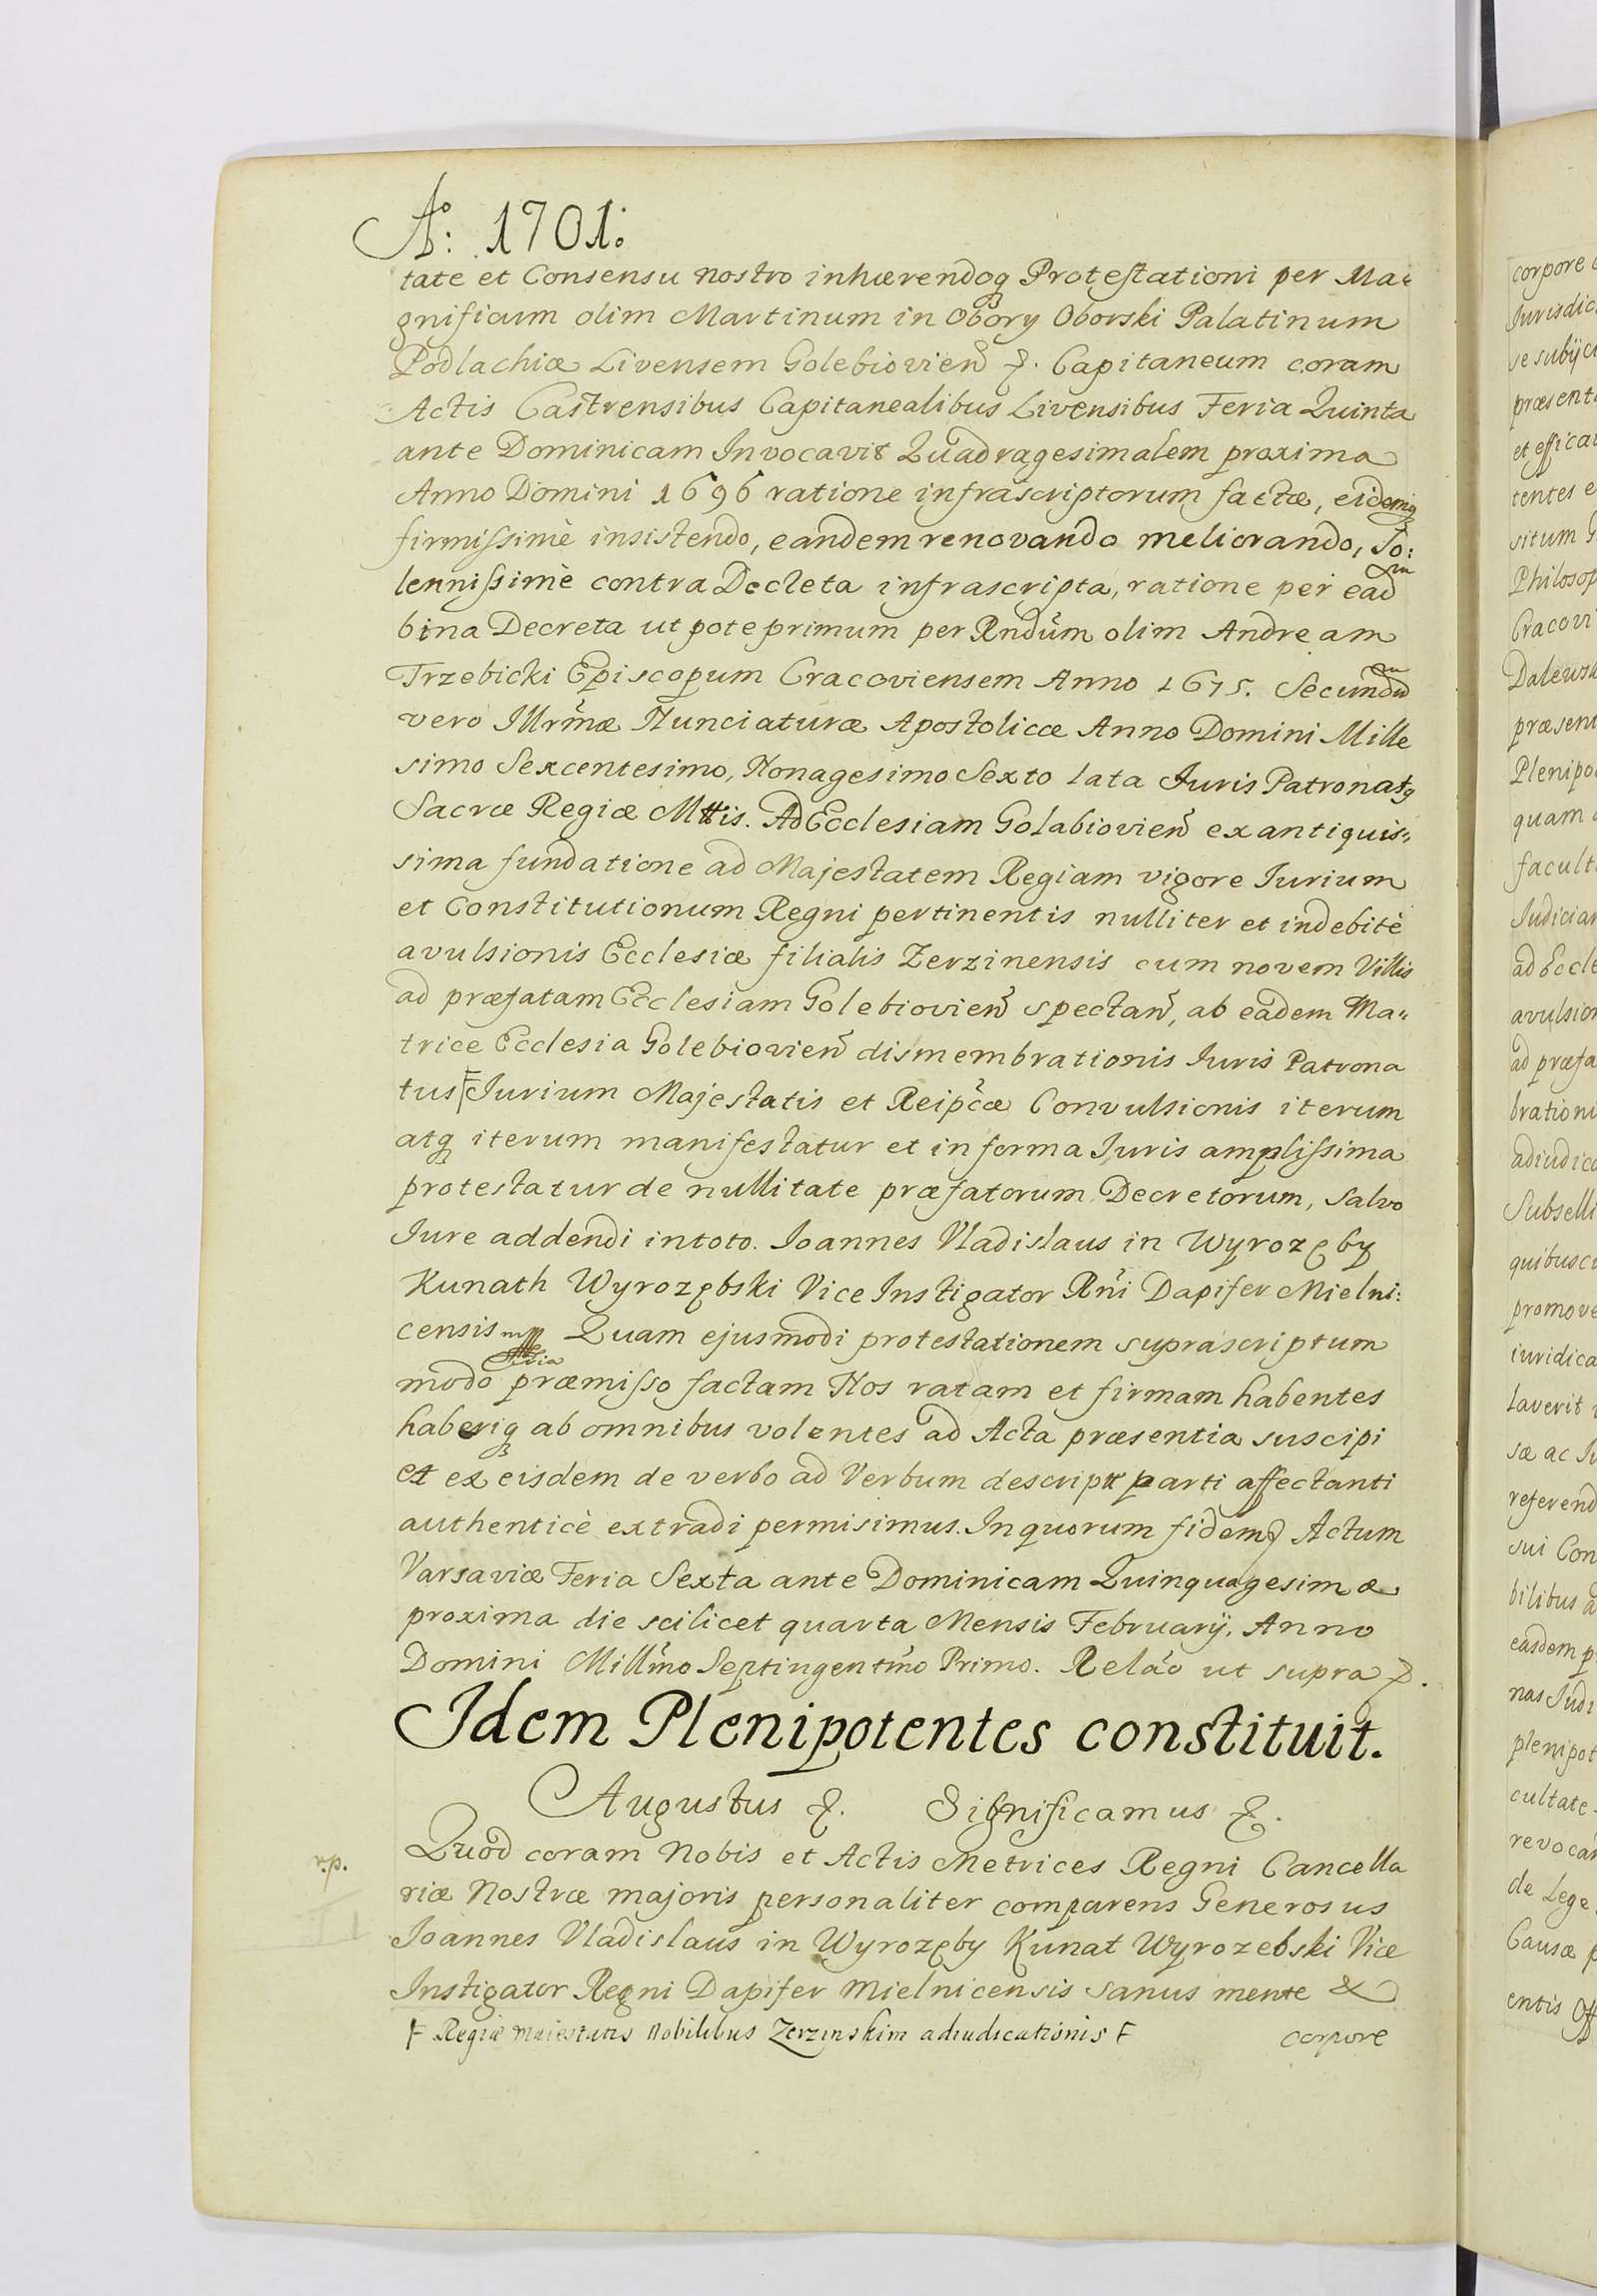 Aº: 1701:
tate et Consensu nostro inhærendoq Protestationi per Ma=
gnificum olim Martinum in Obory Oborski Palatinum
Podlachiæ Livensem Golebiovien &. Capitaneum coram
Actis Castrensibus Capitanealibus Livensibus Feria Quinta
ante Dominicam Invocavit Quadragesimalem proxima
Anno Domini 1696 ratione infrascriptorum factæ, eidemq
firmissimè insistendo, eandem renovando meliorando, So:
lennissimè contra Decreta infrascripta, ratione per eadm
bina Decreta ut pote primum per Rndūm olim Andream
Trzebicki Episcopum Cracoviensem Anno 1675. Secundū
vero Illrmæ Nunciaturæ Apostolicæ Anno Domini Mille
simo Sexcentesimo, Nonagesimo Sexto lata Juris Patronatq
Sacræ Regiæ Mttis. Ad Ecclesiam Golabiovien ex antiquis=
sima fundatione ad Majestatem Regiam vigore Iurium
et Constitutionum Regni pertinentis nulliter et indebitè
avulsionis Ecclesiæ filialis Zerzinensis cum novem Villis
ad præfatam Ecclesiam Golebiovien spectan, ab eadem Ma=
trice Ecclesia Golebiovien dismembrationis Iuris Patrona
tus F Iurium Majestatis et Reipcæ Convulsionis iterum
atq iterum manifestatur et in forma Iuris amplissima
protestatur de nullitate præfatorum Decretorum, salvo
Iure addendi in toto. Ioannes Vladislaus in Wyrozęby
Kunath Wyrozębski Vice Instigator Rni Dapifer Mielni:
censis mp Quam ejusmodi protestationem suprascriptum
modo præmisso factam Nos ratam et firmam habentes
haberiq ab omnibus volentes ad Acta præsentia suscipi
et ex eisdem de verbo ad Verbum descript parti affectanti
authenticè extradi permisimus. In quorum fidem & Actum
Varsaviæ Feria Sexta ante Dominicam Quinquagesimæ
proxima die scilicet quarta Mensis February. Anno
Domini Millmo Septingentmo Primo. Relāo ut supra &.
Idem Plenipotentes constituit.
Augustus &. Significamus &.
v.p. Quod coram Nobis et Actis Metrices Regni Cancella
riæ Nostræ majoris personaliter comparens Generosus
Ioannes Vladislaus in Wyrozęby Kunat Wyrozebski Vice
Instigator Regni Dapifer Mielnicensis sanus mente &
F Regiæ maiestatis Nobilibus Zerzinskim adiudicationis F corpore
corpore
Jurisdic
se subijci
præsent
et effica
tentes e
situm G
Philosop
Cracovi
Dalewsk
præsen
Plenipo
quam
facult
Judiciar
ad Eccle
avulsion
ad præfa
bration
adiudica
Subselli
quibusc
promove
iuridica
laverit
sæ ac Iu
referend
sui Con
bilibus a
easdem p
nas Iudi
plenipot
cultate
revocan
de Lege
Causæ p
entis Off